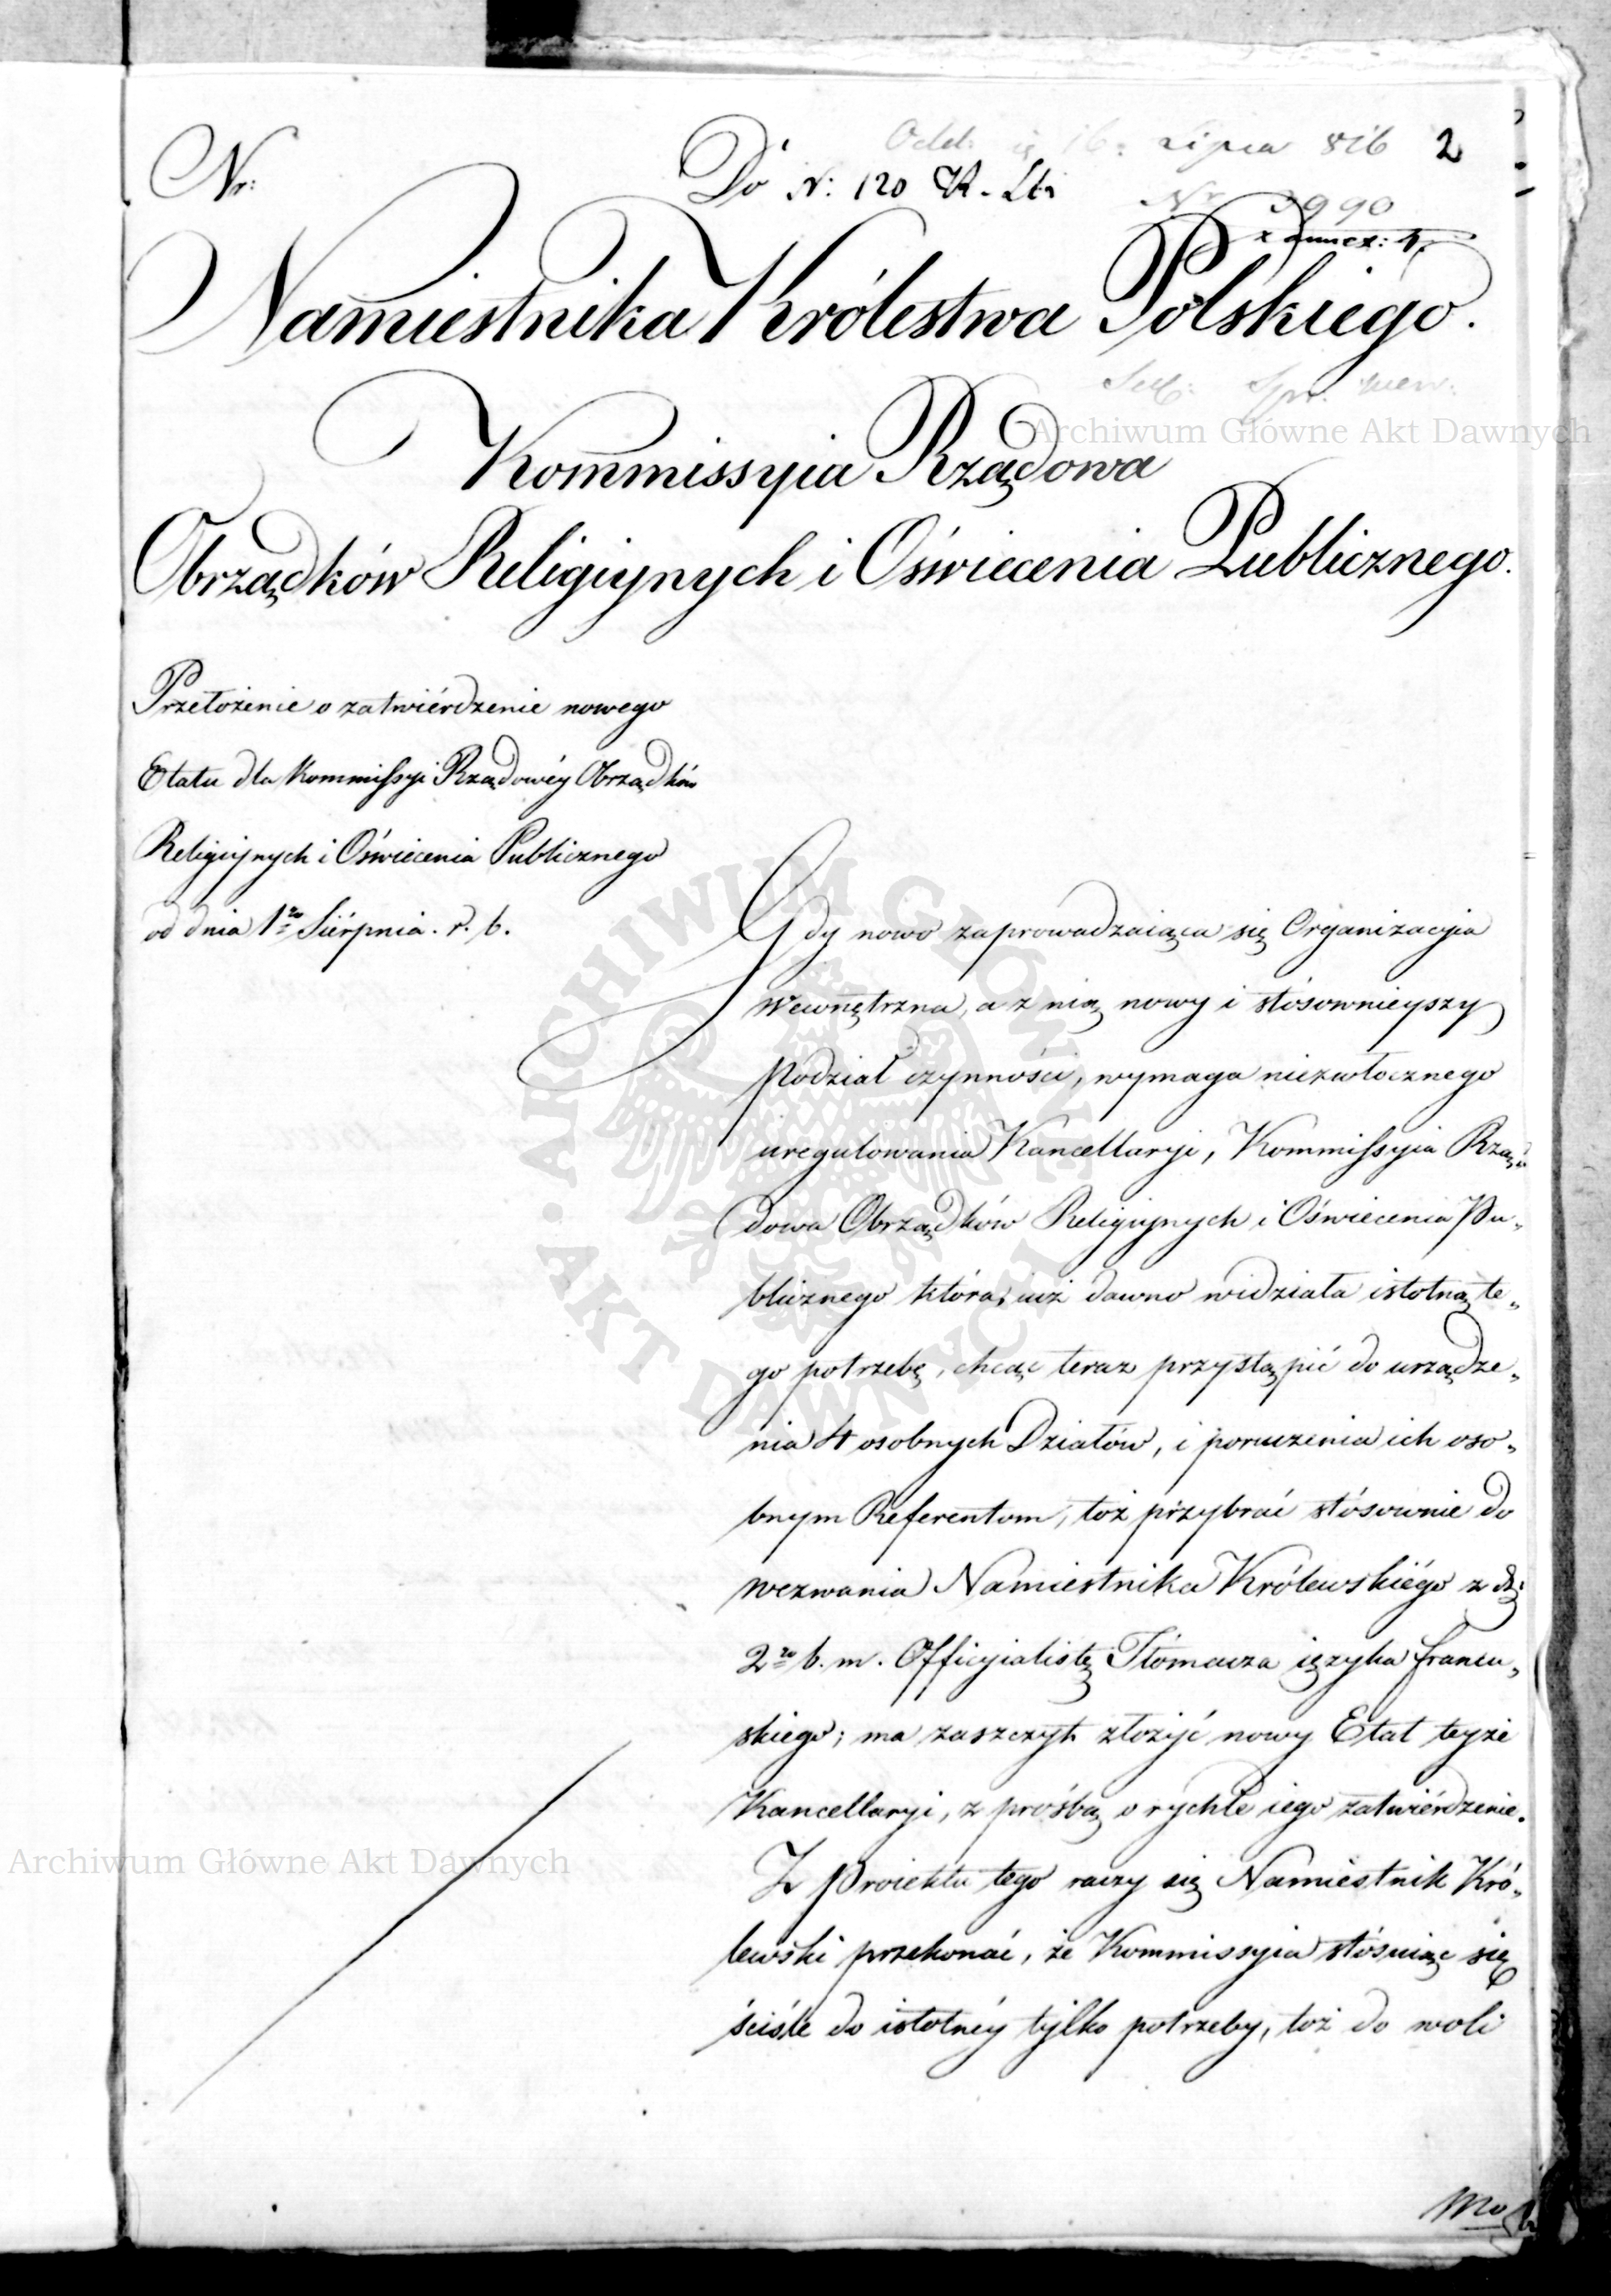 Oddz. 16. Lipca 816 2
Nr:
Do N: 120 K.
Nr 3990
z annex: 4.
Namiestnika Królestwa Polskiego.
Archiwum Główne Akt Dawnych
Kommissyia Rządowa
Obrządków Religiynych i Oświecenia Publicznego.
Przełożenie o zatwiérdzenie nowego
Etatu dla Kommissyi Rządowéy Obrządków
Religiynych i Oświecenia Publicznego
od dnia 1go Siérpnia. r. b.
Gdy nowo zaprowadzaiąca się Organizacyia
wewnętrzna, a z nią nowy i stósownieyszy
podział czynności, wymaga niezwłocznego
uregulowania Kancellaryi, Kommissyia Rzą„
dowa Obrządków Religiynych i Oświecenia Pu„
blicznego która iuż dawno widziała istotną te„
go potrzebę, chcąc teraz przystąpić do urządze„
nia 4 osobnych Działów, i poruczenia ich oso„
bnym Referentom, toż przybrać stósownie do
wezwania Namiestnika Królewskiégo z d.
2go b. m. Officyialistę Tłómacza ięzyka francu„
skiego; ma zaszczyt złożyć nowy Etat teyże
Kancellaryi, z prośbą o rychłe iego zatwiérdzenie.
Z proiektu tego raczy się Namiestnik Kró„
lewski przekonać, że Kommissyia stósuiąc się
ściśle do istotnéy tylko potrzeby, toż do woli
ARCHIWUM GŁÓWNE · AKT DAWNYCH ·
Archiwum Główne Akt Dawnych